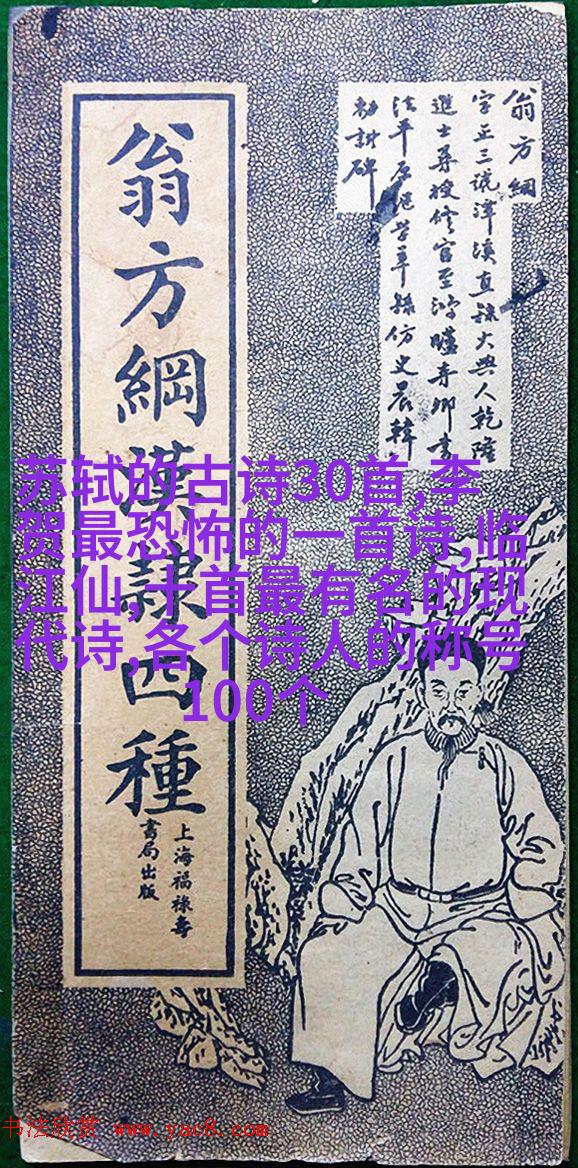 翁方綱
字正三號潭溪直隸大興人乾隆
進士尋授修官至鴻臚寺卿書
法平原仿史晨韓
勅封碑
翁方綱漢隸四種
上海福祿壽
書局出版
苏轼的古诗30首,李
贺最恐怖的一首诗,临
江仙,十首最有名的现
代诗,各个诗人的称号
100个
书法欣赏 www.yac8.com